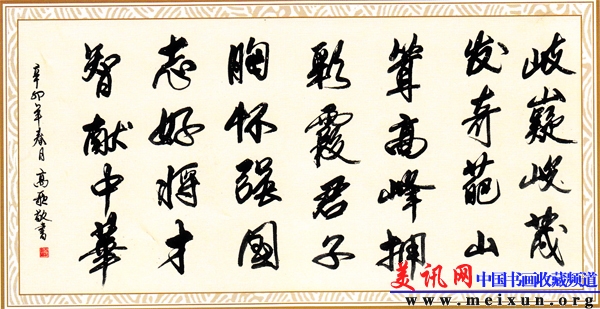 岐嶷峻茂
发奇葩山
耸高峰拥
彩霞君子
胸怀强国
志好将才
智献中華
辛卯年春月 高歌敬書
美讯网 中国书画收藏频道
www.meixun.org